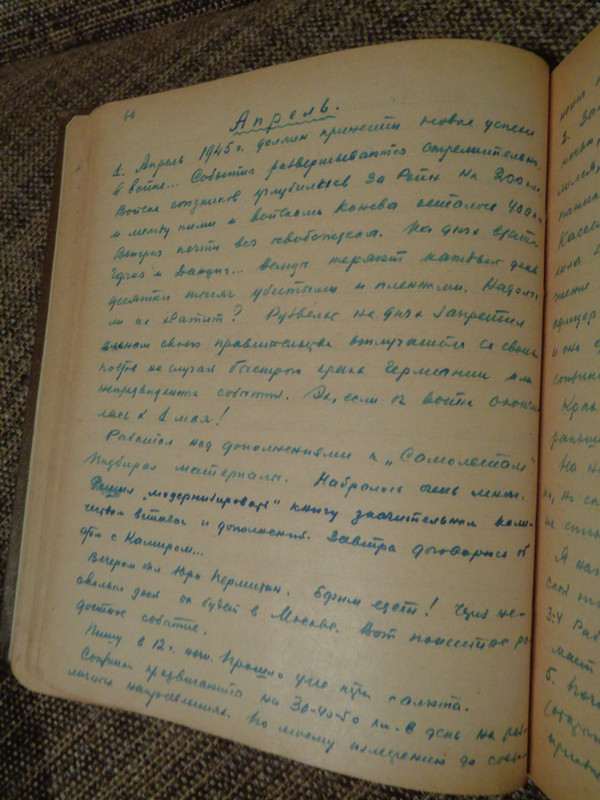 66
Апрель.
1. Апрель 1945 г. должен принести новые успехи
в войне... События развертываются стремительно.
Войска союзников углубились за Рейн на 200 км.
и между ними и войсками Конева осталось 400 км
Венгрия почти вся освобождена. На днях взяты
Гдыня и Данциг... Немцы теряют каждый день
десятки тысяч убитыми и пленными. Надолго
ли их хватит? Рузвельт на днях запретил
членам своего правительства отлучаться со своих
постов на случай быстрого краха Германии или
непредвиденных событий. Эх, если бы война окончи
лась к 1 мая!
Работал над дополнениями к „Самолетам"
Подбирал материалы. Набралось очень много.
Решил „модернизировать" книгу значительным коли-
чеством вставок и дополнений. Завтра договорюсь об
этом с
Вечером был Юра Пермитин. Ефим едет! Через не-
сколько дней он будет в Москве. Вот поистине ра-
достное событие.
Пишу в 12 ч. ночи. Прошло уже три салюта.
Союзники продвигаются на 30-40-50 км. в день на раз-
личных направлениях. По моему измерению до
3.
Кассе
Я на
3.4 Раб
5.